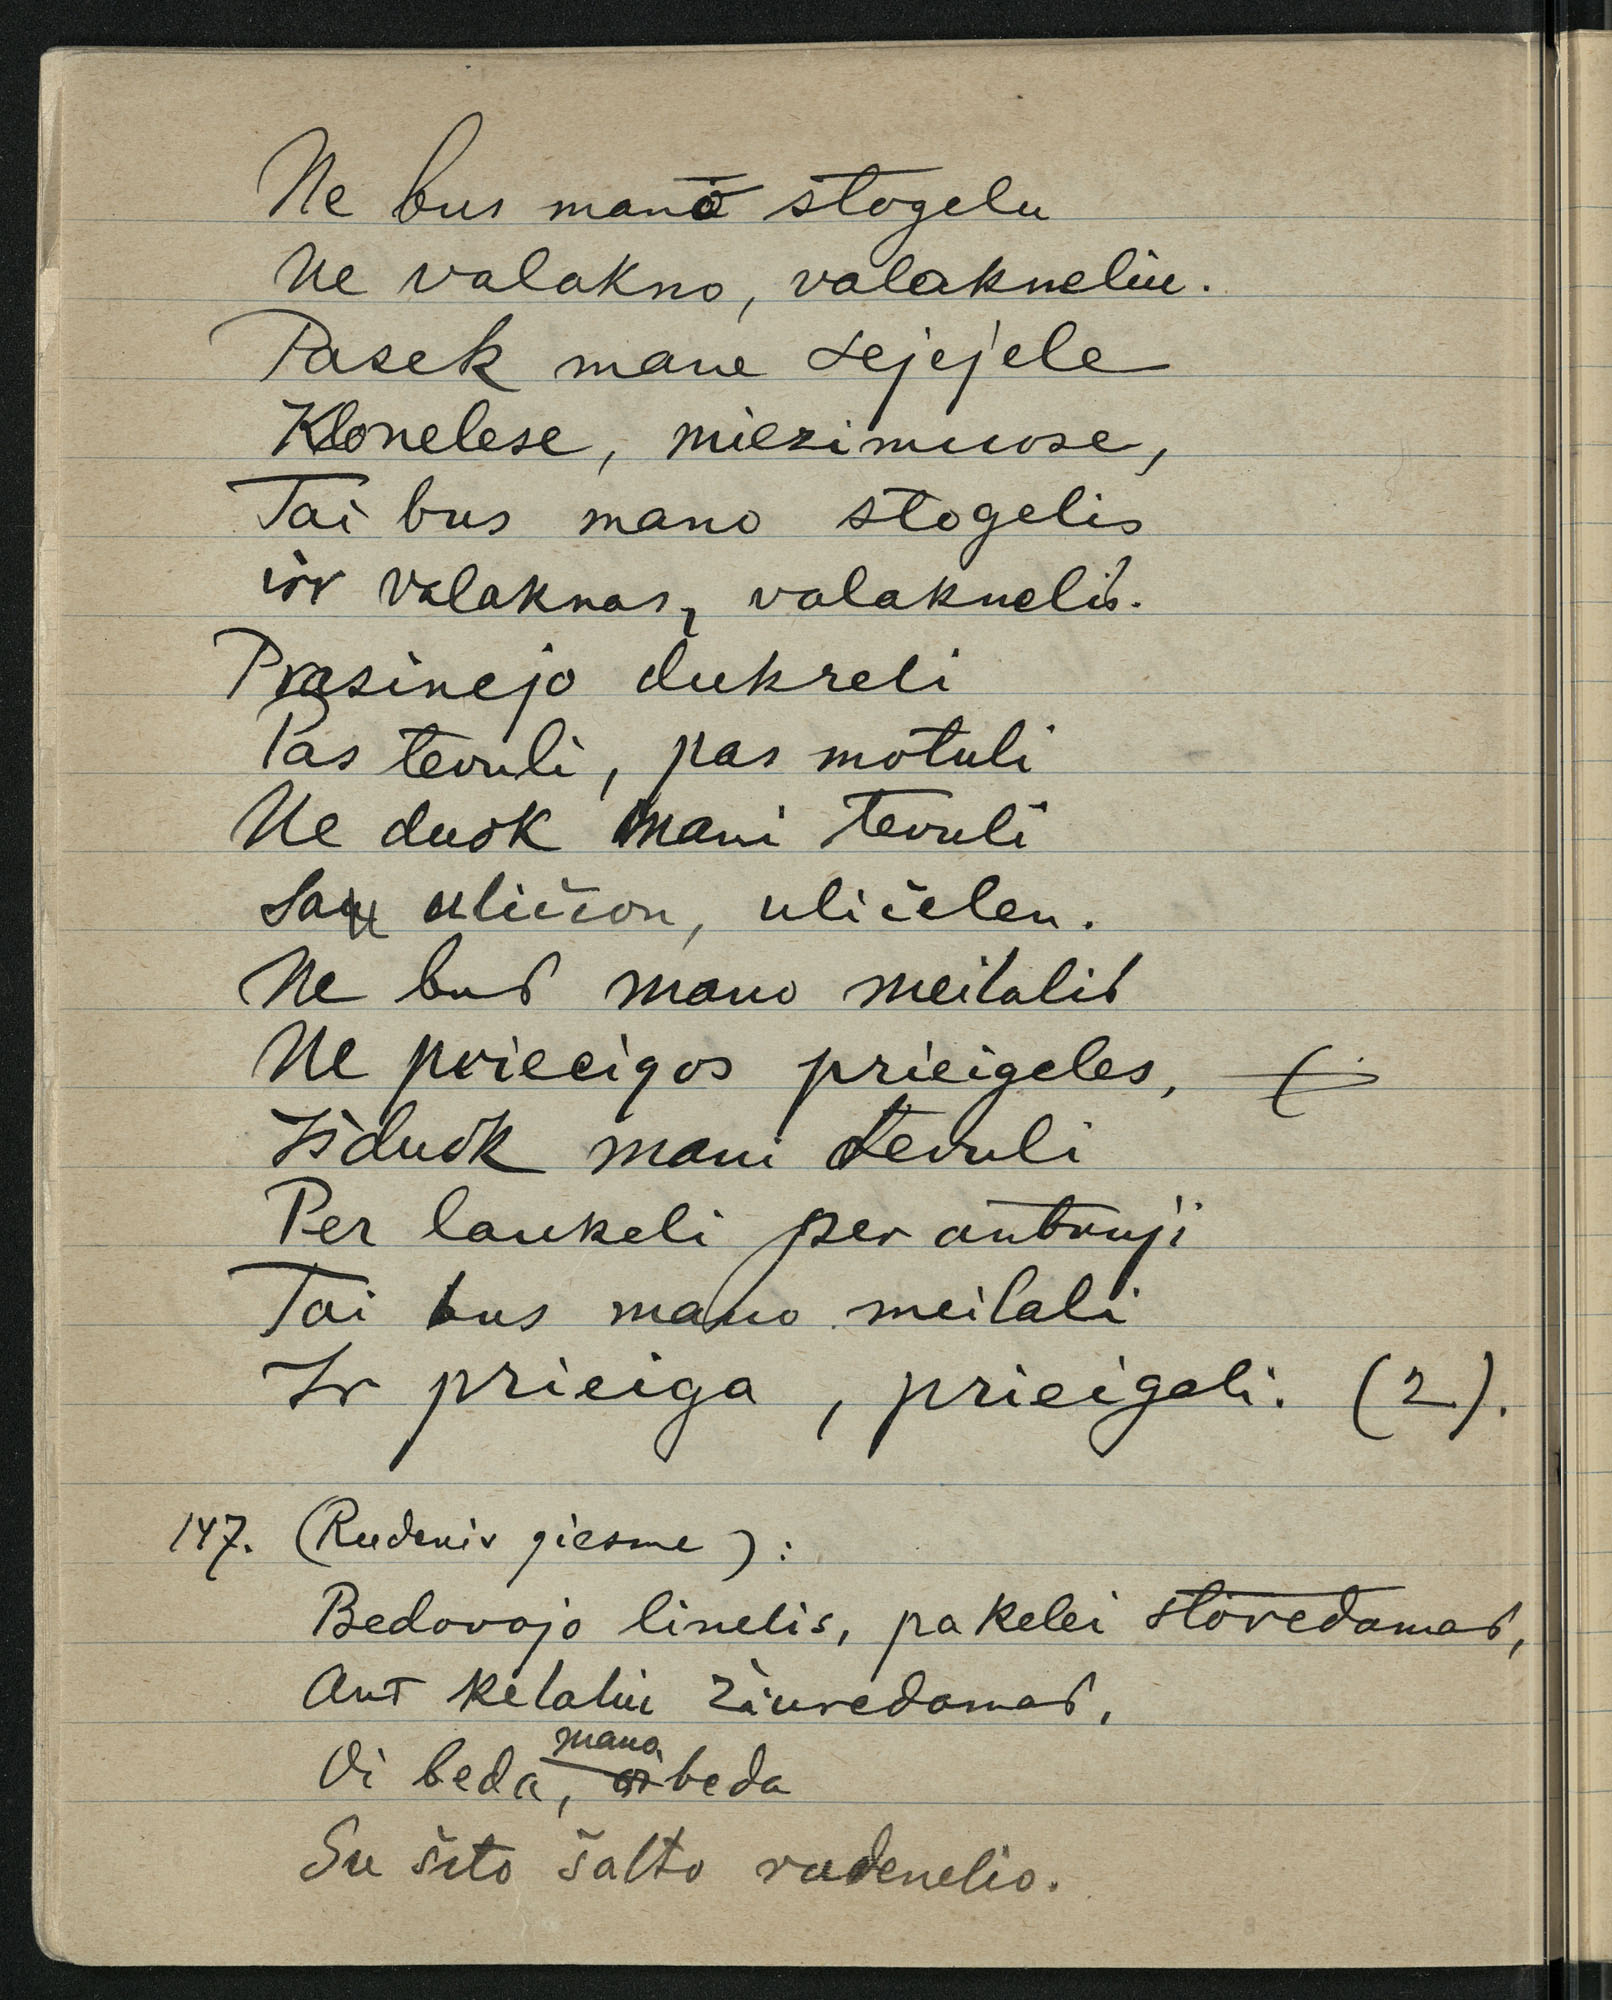 Ne bus mano stogelu
Ne valakno, valakneliu.
Pasek mane sejejele
Klonelese, miezimuose,
Tai bus mano stogelis
ir valaknas, valaknelis.
Prasinejo dukreli
Pas tevuli, pas motuli
Ne duok mani tevuli
San uličion, uličelen.
Ne bus mano meilalis
Ne prieeigos prieigeles,
Išduok mani tevuli
Per laukeli per antruji
Tai bus mano meilali
Ir prieiga, prieigeli. (2).
147. (Rudenis giesme):
Bedovojo linelis, pakelei stovedamas,
Ant kelaliu žiuredamas,
Oi beda, mano beda
Su šito šalto rudenelio.